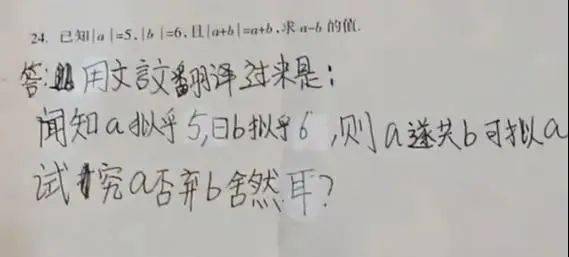 24. 已知|a|=5,|b|=6,且|a+b|=a+b,求a-b的值.
答: 用文言文翻译过来是:
闻知a拟乎5,曰b拟乎6,则a遂共b可拟a
试究a否弃b舍然耳?